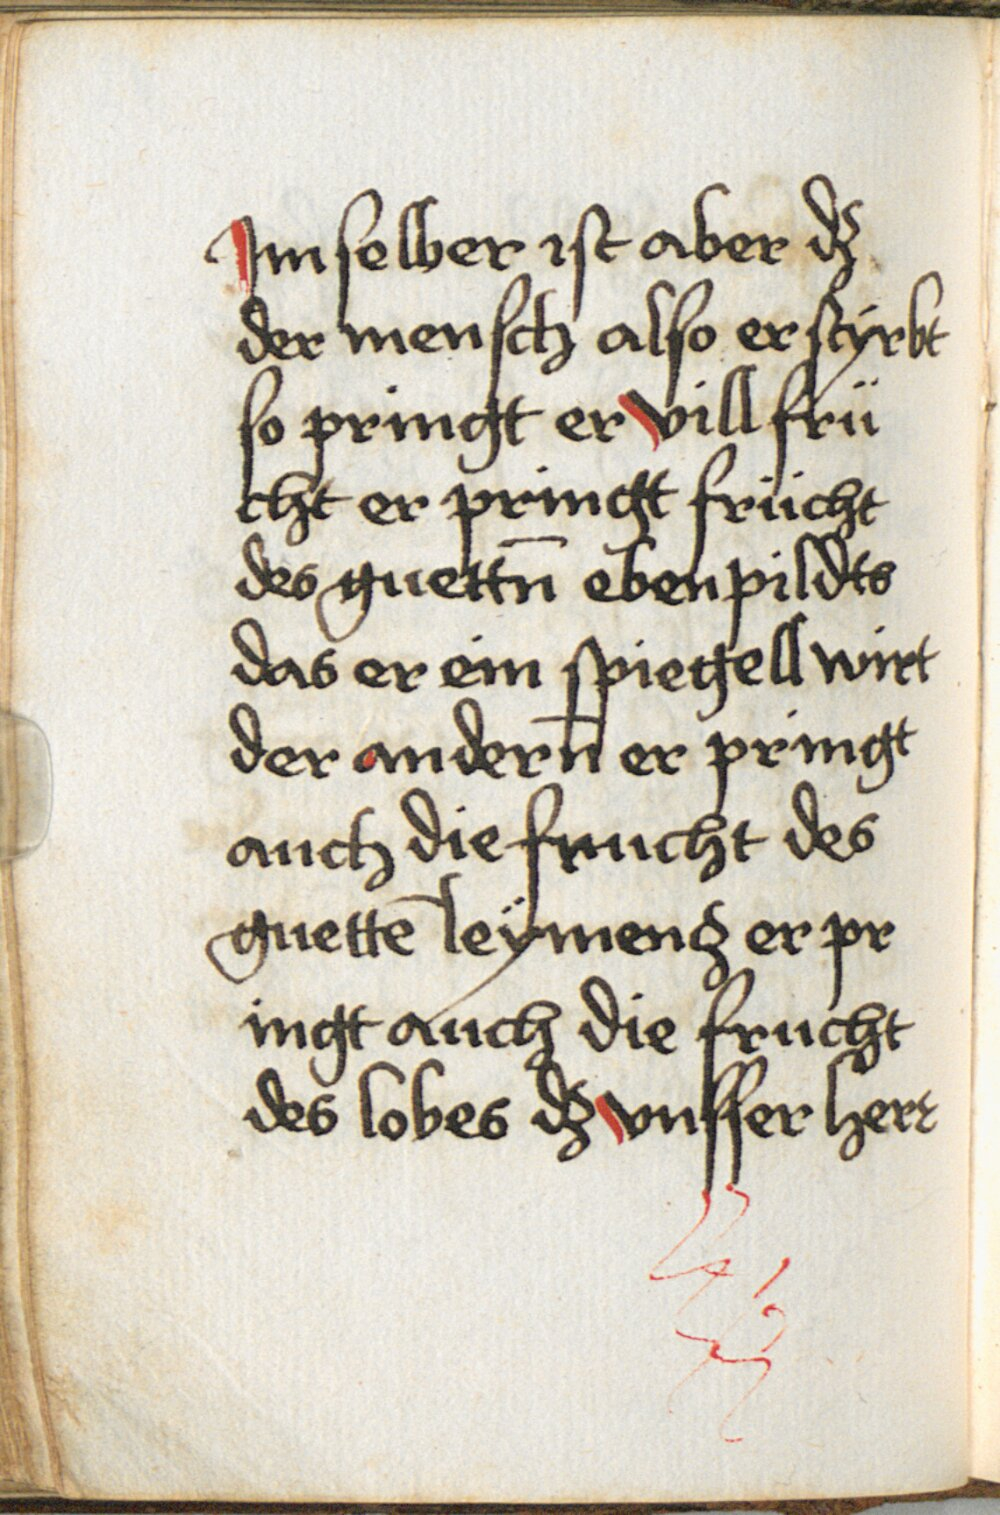 Im selber ist aber dz
der mensch also er styrbt
so pringt er vill frü
cht er pringt frücht
des guettn̄ ebenpildts
das er ein spiegell wirt
der andern̄ er pringt
auch die frucht des
guettē leÿmenz er pr
ingt auch die frucht
des lobes dz vnsser herr